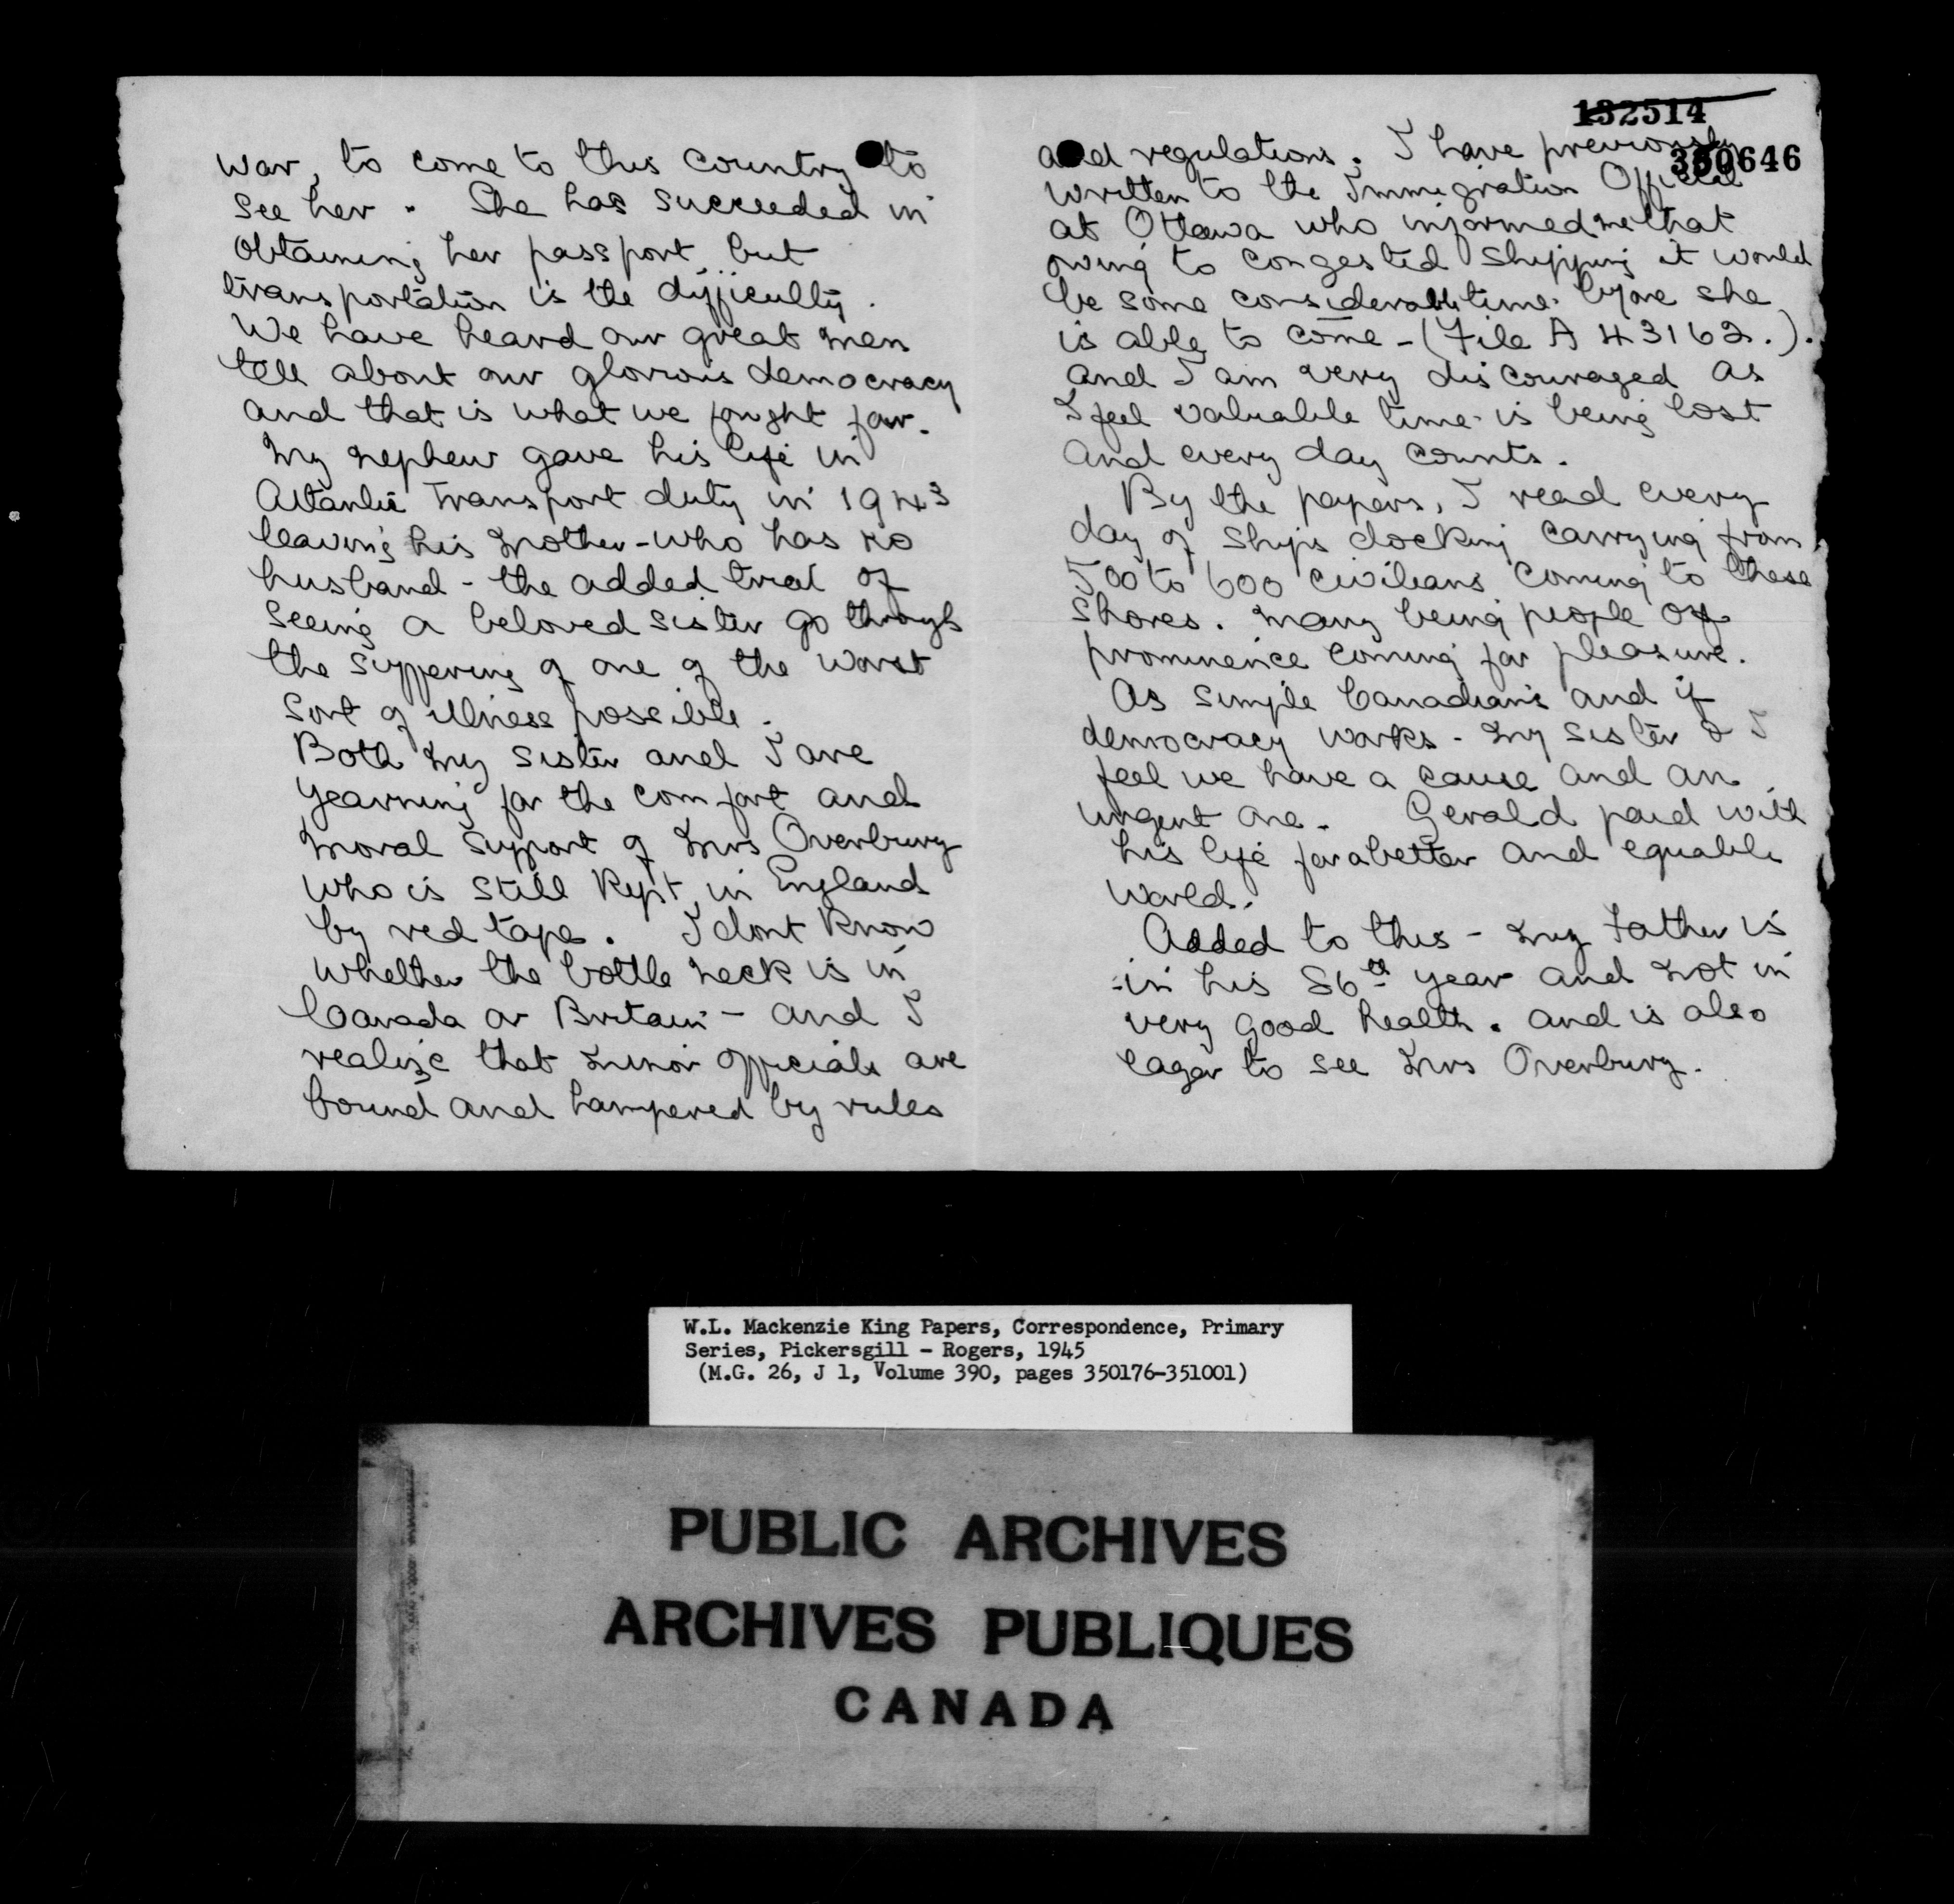 war, to come to this country to
see her. She has succeeded in
obtaining her passport but
transportation is the difficulty.
We have heard our great men
tell about our glorious democracy
and that is what we fought for.
My nephew gave his life in
Atlantic Transport duty in 1943
leaving his mother - who has no
husband - the added trial of
seeing a beloved sister go through
the suffering of one of the worst
sort of illness possible.
Both my sister and I are
yearning for the comfort and
moral support of Mrs Overbury
who is still kept in England
by red tape. I dont know
whether the bottle neck is in
Canada or Britain - and I
realize that minor officials are
bound and hampered by rules
132514
350646
and regulations. I have previously
written to the Immigration Official
at Ottawa who informed me that
owing to congested shipping it would
be some considerable time before she
is able to come - (File A 43162.).
and I am very discouraged as
I feel valuable time is being lost
and every day counts.
By the papers, I read every
day of ships docking carrying from
500 to 600 civilians coming to these
shores. Many being people of
prominence coming for pleasure.
As simple Canadians and if
democracy works - my sister & I
feel we have a cause and an
urgent one. Gerald paid with
his life for a better and equable
world.
Added to this - my Father is
in his 86th year and not in
very good health. and is also
eager to see Mrs Overbury.
W.L. Mackenzie King Papers, Correspondence, Primary
Series, Pickersgill - Rogers, 1945
(M.G. 26, J 1, Volume 390, pages 350176-351001)
PUBLIC ARCHIVES
ARCHIVES PUBLIQUES
CANADA